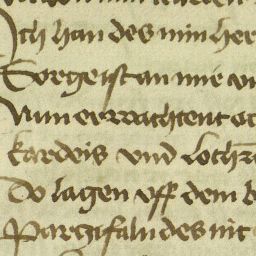 Ich han des min her
Sorge ist an mir v
Nun erwachtent oc
kardeis vnd lothr
Do lagen vff dem b
Parzifaln des nit